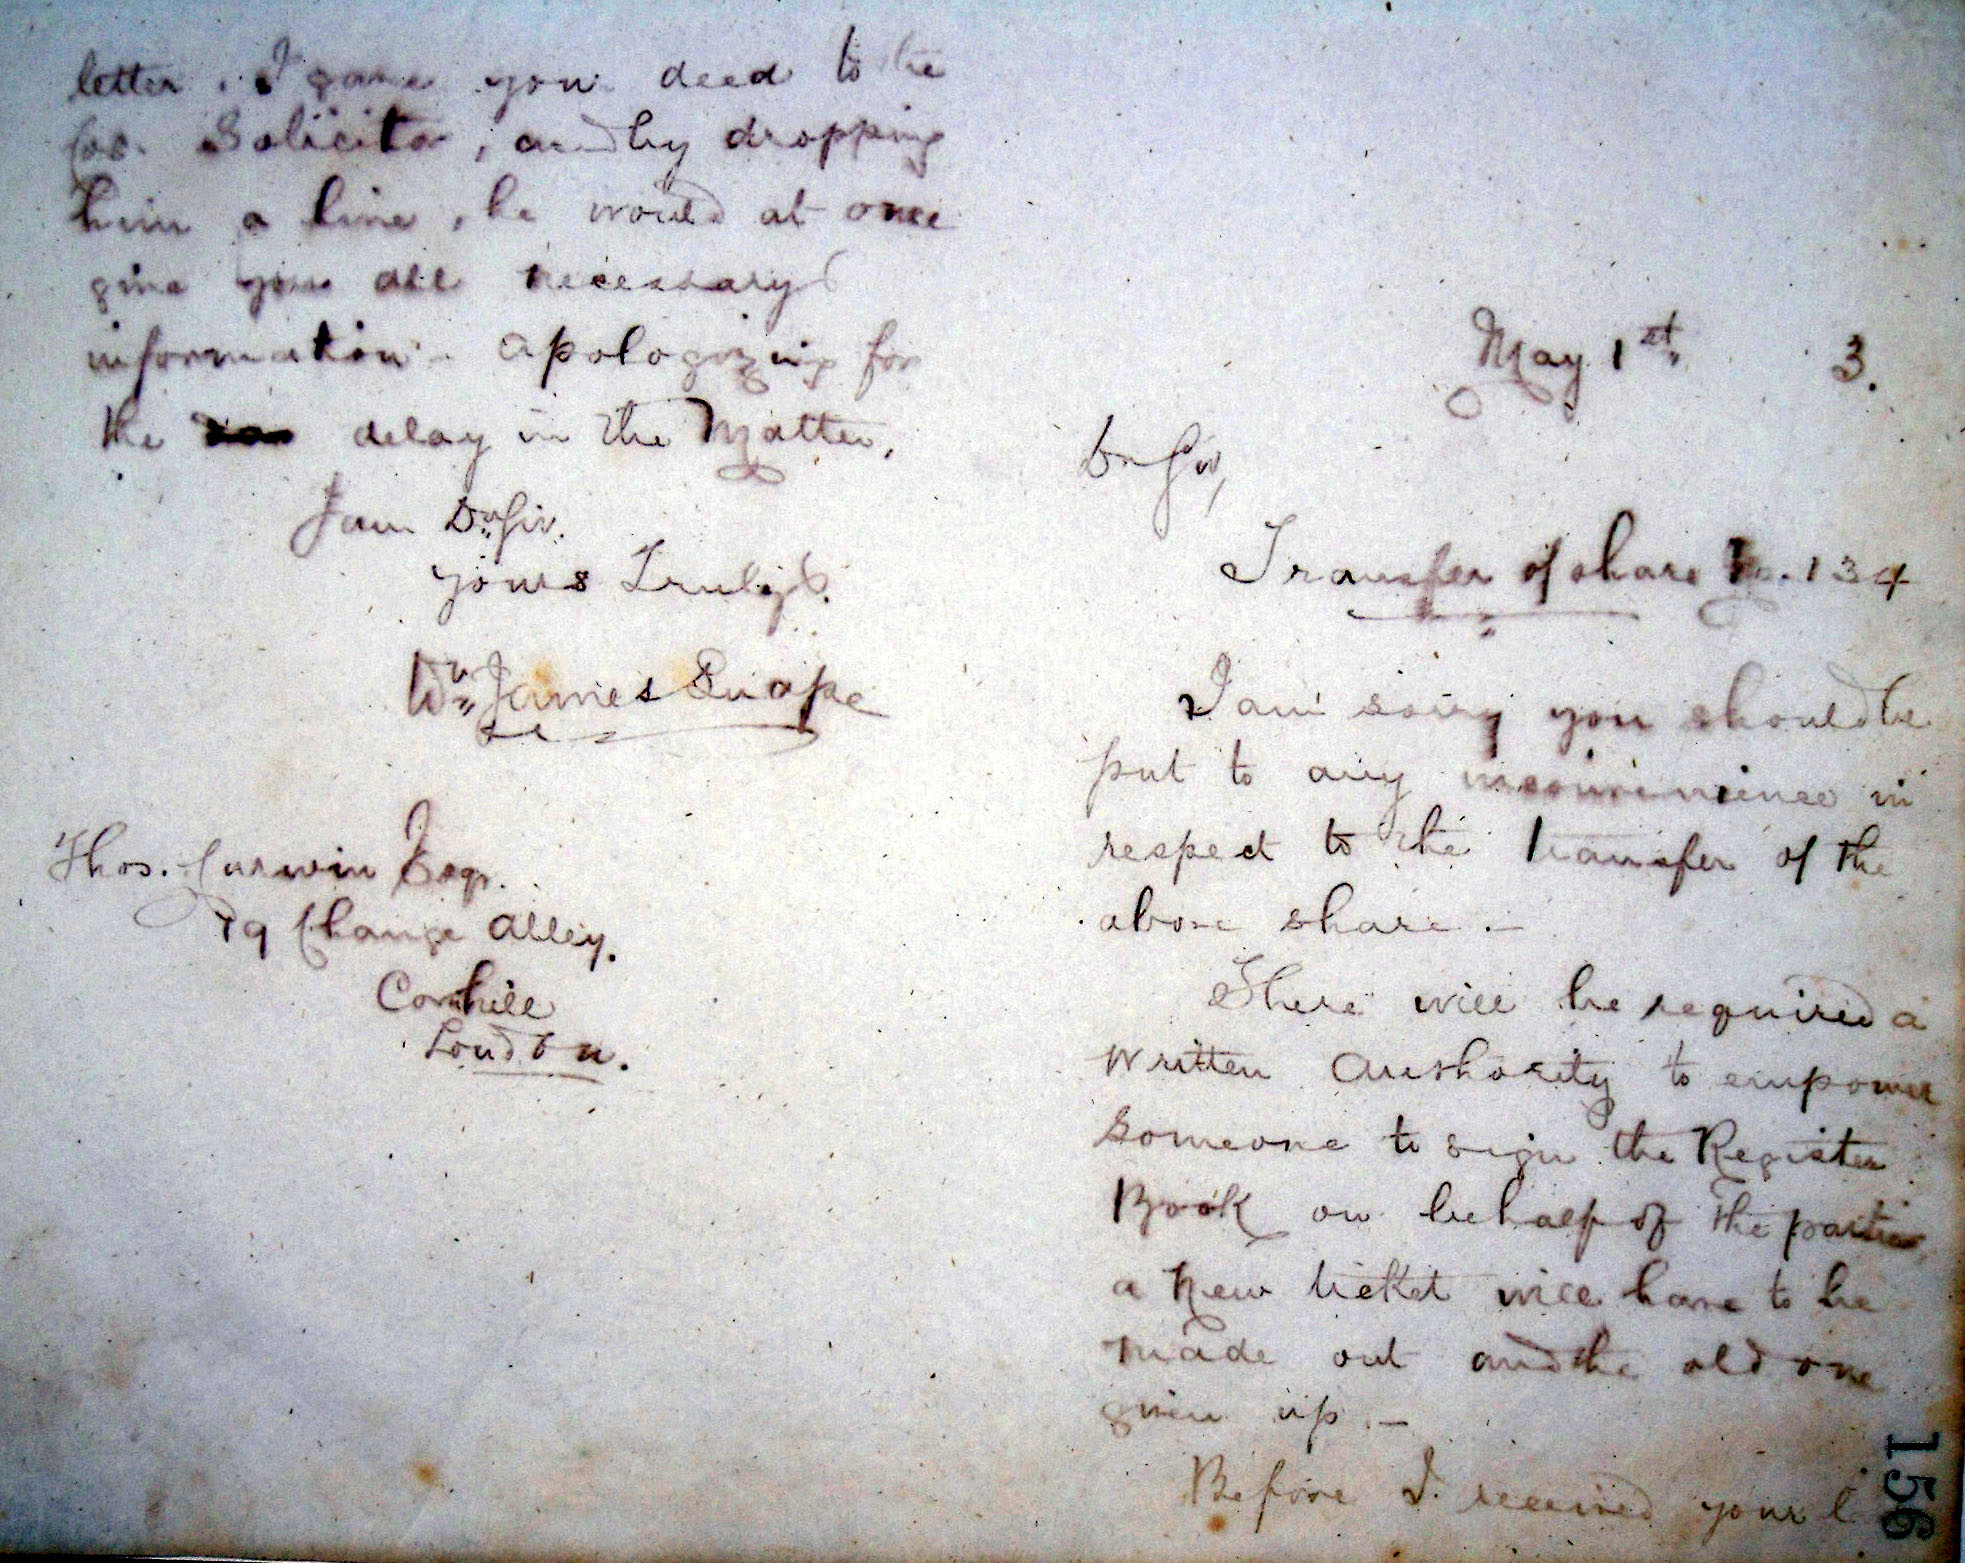 May 1st, 3.
Dr Sir,
Transfer of share No. 134
I am sorry you should be
put to any inconvenience in
respect to the transfer of the
above share. —
There will be required a
written authority to empower
someone to sign the Register
Book on behalf of the parties,
a New ticket will have to be
made out and the old one
given up. —
Before I received your
156
letter. I gave you deed to the
Cos. Solicitor, and by dropping
him a line, he would at once
give you all necessary
information - apologizing for
the delay in the Matter,
I am Dr Sir.
yours Truly.
Wm James Snape
Thos. Curwin Esqr.
Change Alley.
Cornhill
London.